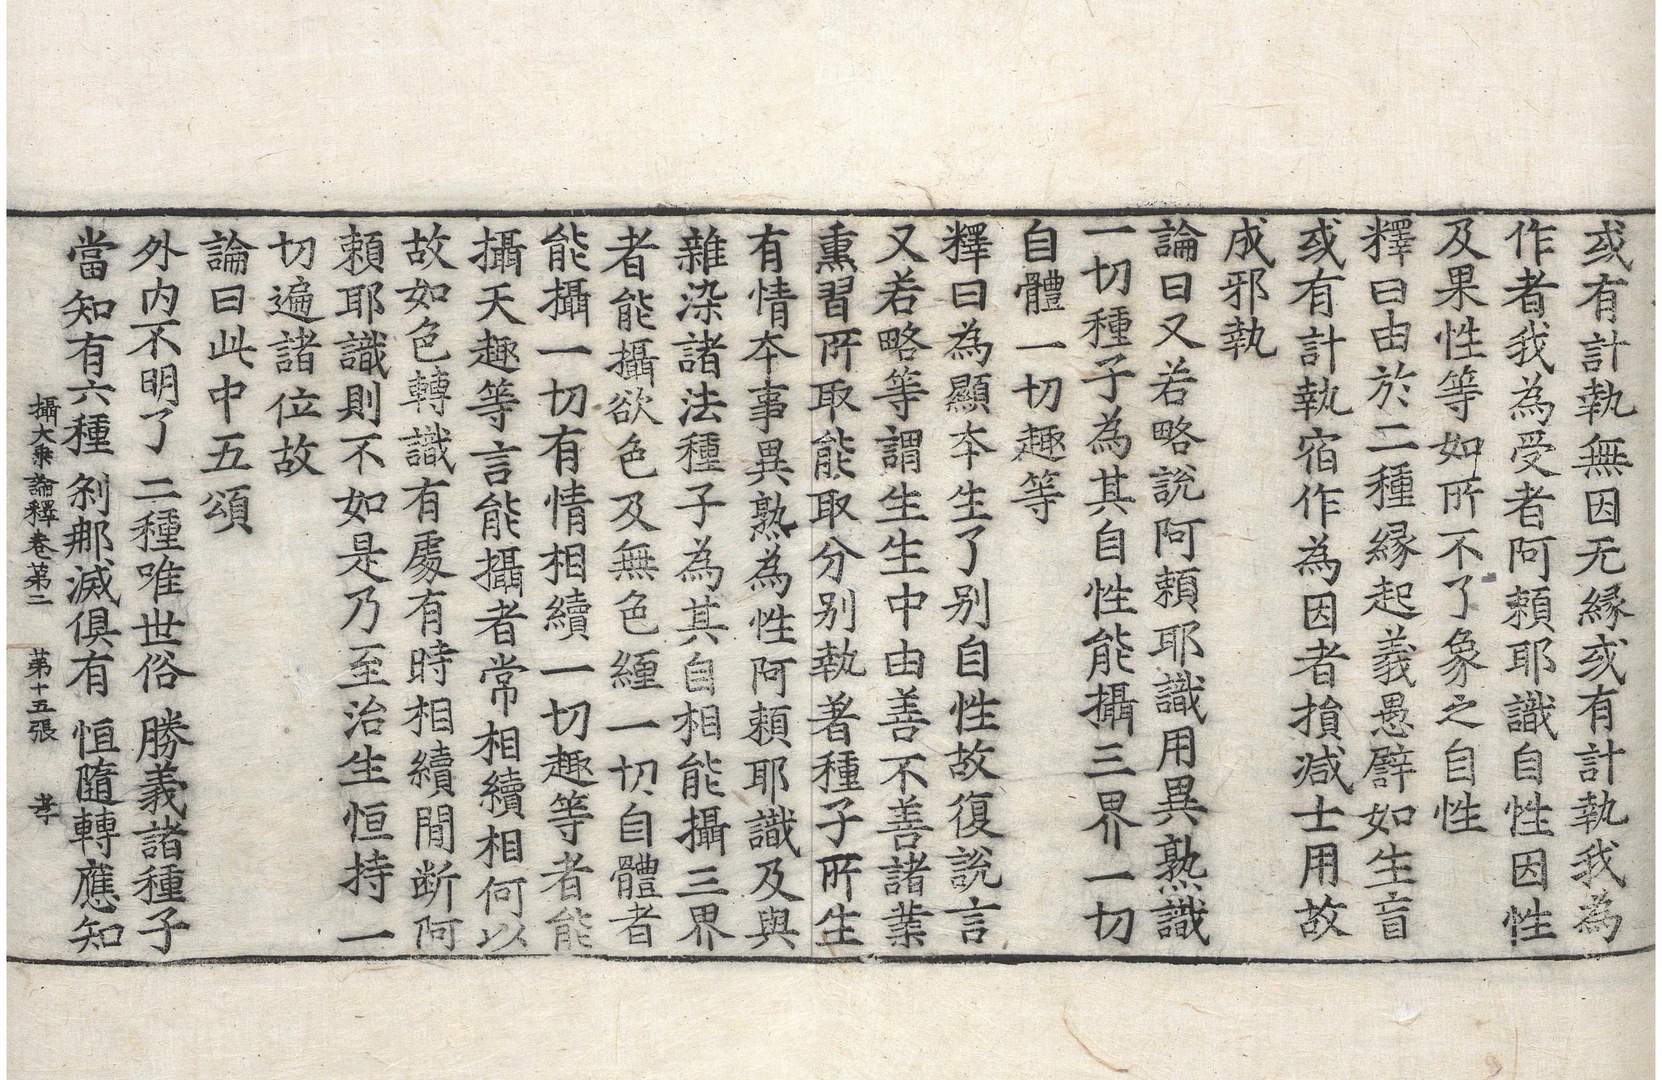 或有計執無因无縁或有計執我為
作者我為受者阿頼耶識自性因性
及果性等如所不了象之自性
釋曰由於二種縁起義愚譬如生盲
或有計執宿作為因者損减士用故
成邪執
論曰又若略說阿頼耶識用異熟識
一切種子為其自性能攝三界一切
自體一切趣等
釋曰為顯夲生了別自性故復說言
又若略等謂生生中由善不善諸業
熏習所取能取分別執著種子所生
有情夲事異熟為性阿頼耶識及與
雜染諸法種子為其自相能攝三界
者能攝欲色及無色纏一切自體者
能攝一切有情相續一切趣等者能
攝天趣等言能攝者常相續相何以
故如色轉識有處有時相續閒断阿
頼耶識則不如是乃至治生恒持一
切遍諸位故
論曰此中五頌
外内不明了 二種唯世俗 勝義諸種子
當知有六種 剎那滅俱有 恒隨轉應知
攝大乘論釋卷第二 第十五張 孝